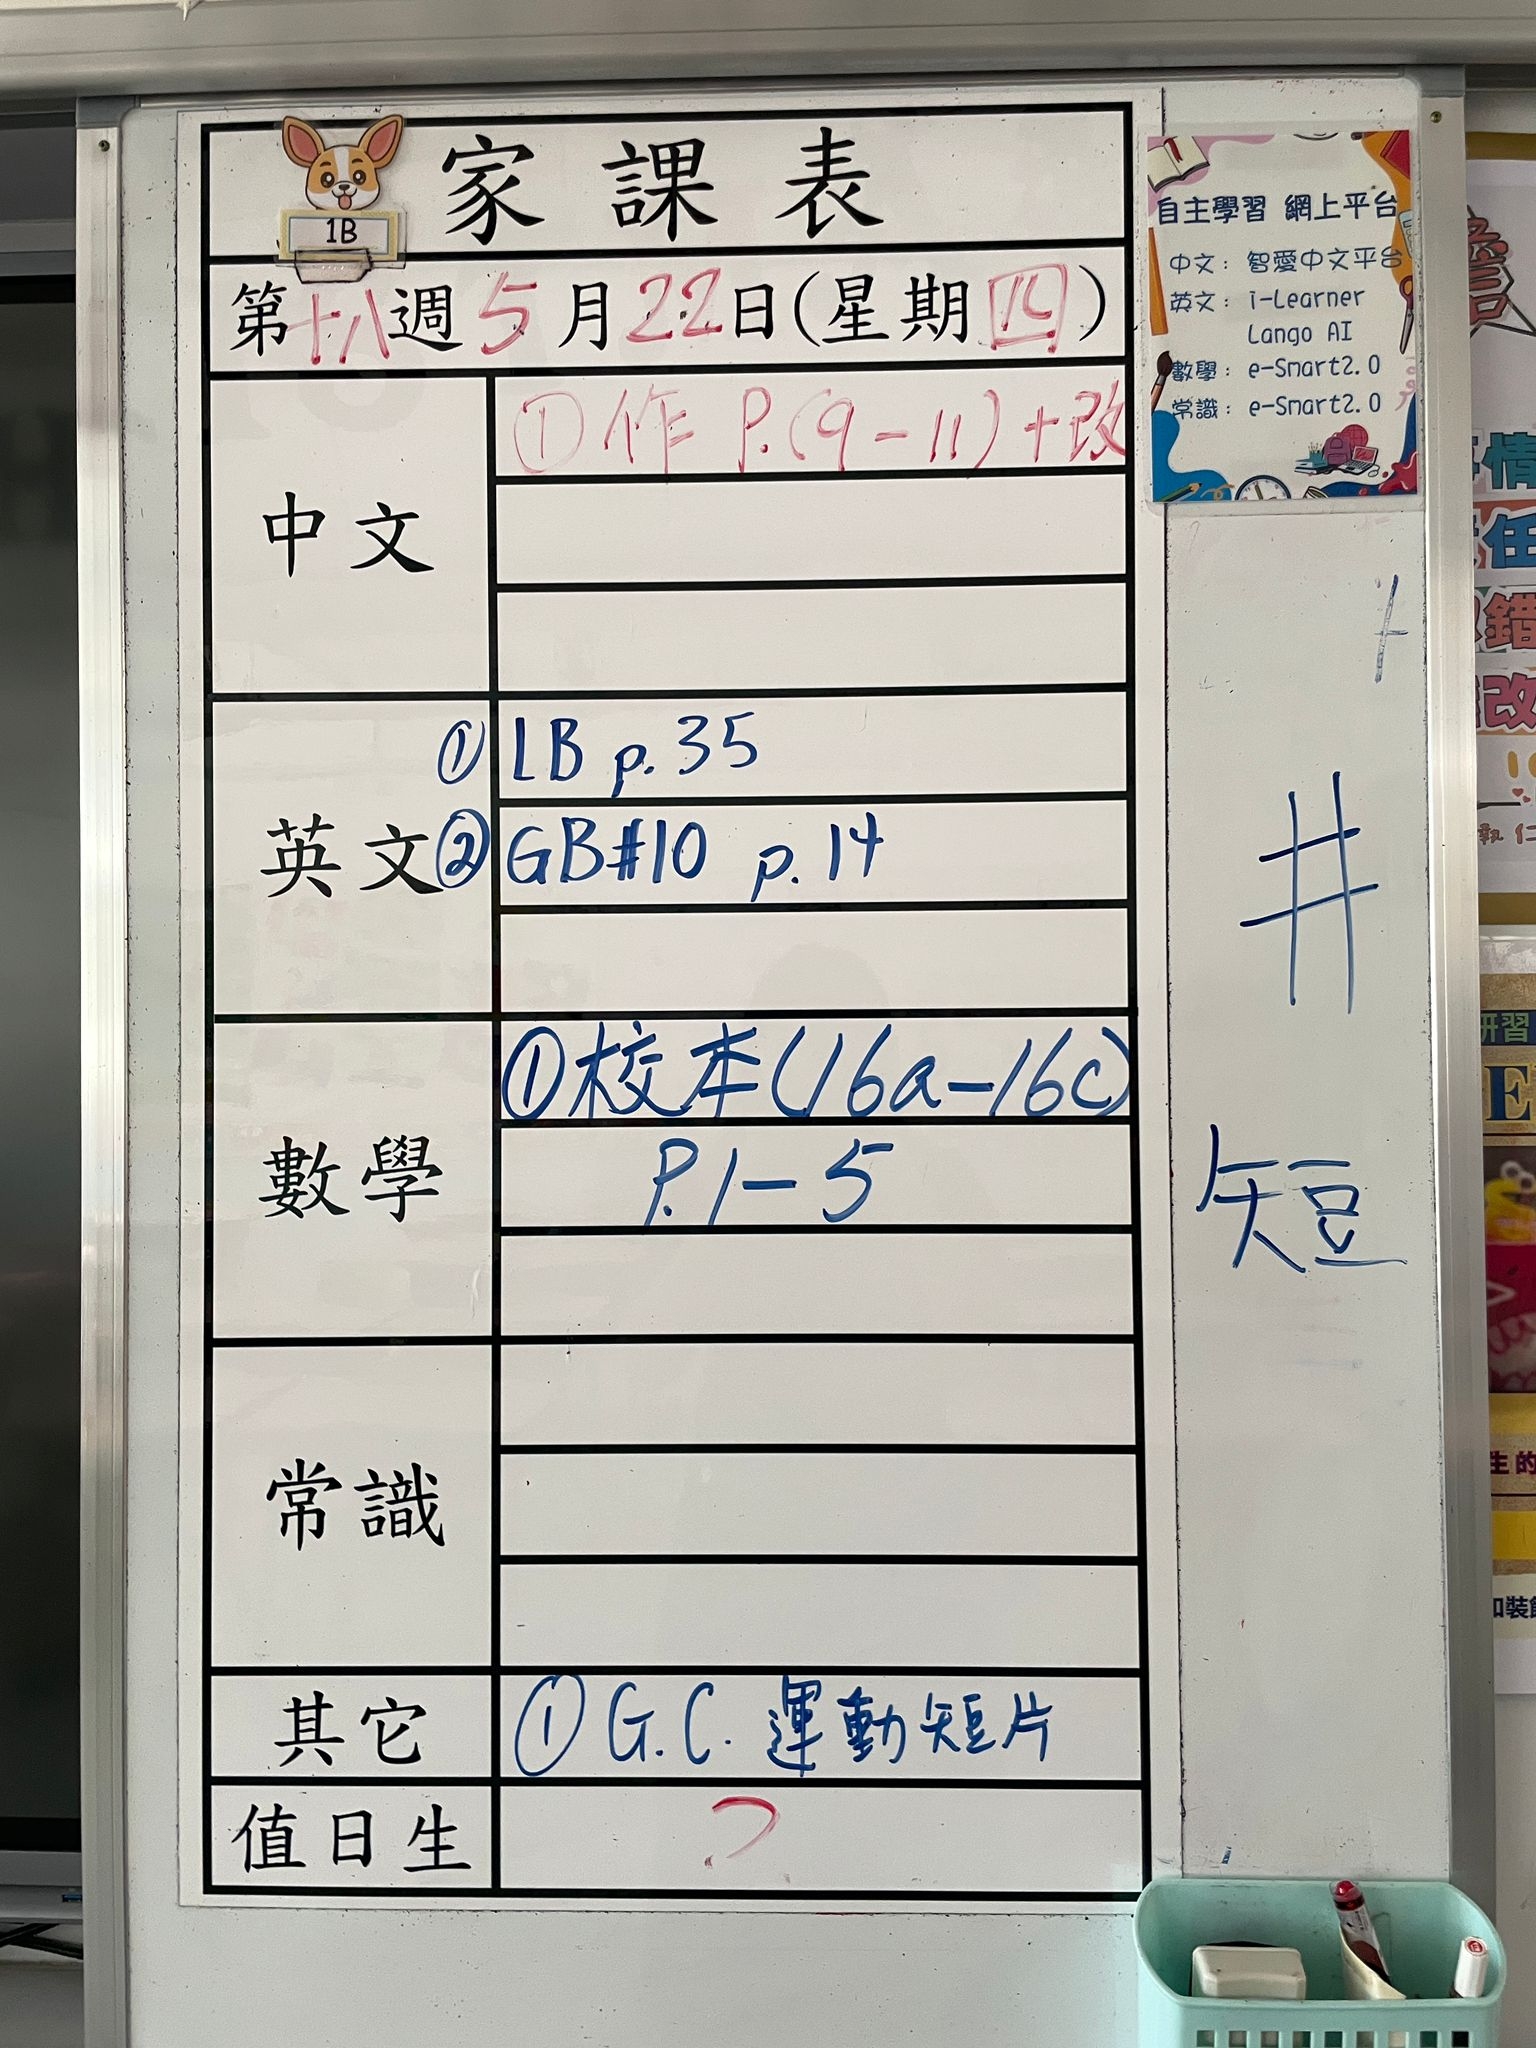 家課表
1B
第十八週5月22日(星期四)
中文
①作 P.(9-11)+改
英文
① LB p.35
② GB#10 p.14
數學
①校本(16a-16c)
P.1-5
常識
其它
①G.C. 運動短片
值日生
?
自主學習 網上平台
中文: 智愛中文平台
英文: i-Learner
Lango AI
數學: e-Smart2.0
常識: e-Smart2.0
#
短
情
任
錯
改
執仁
研習
E
生的
和裝飾